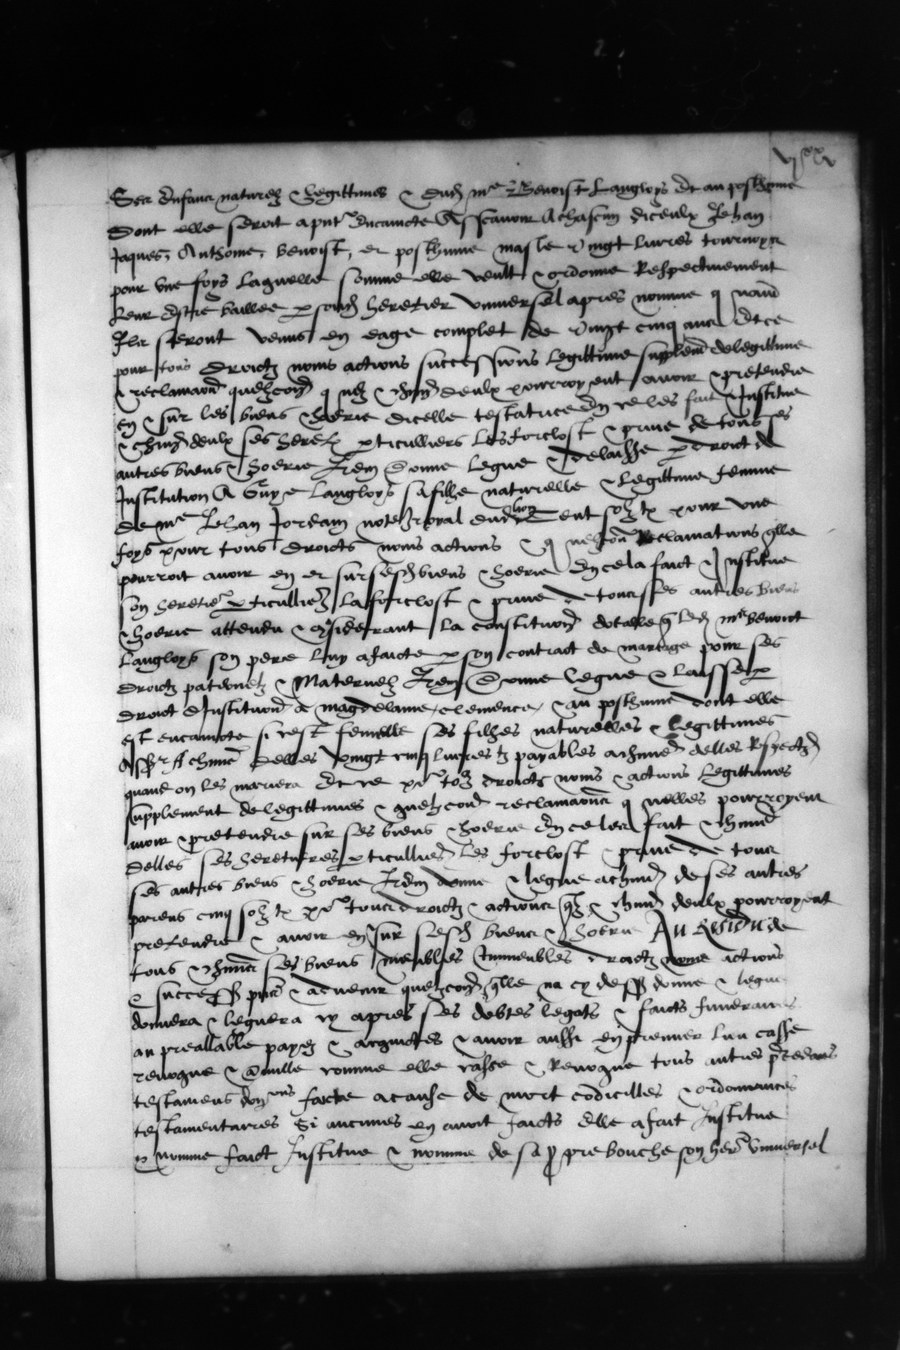 Ses enfans naturelz & legittimes & dud mre Benoist Langloys & au posthume
dont elle seroit apnt encaincte Asscavoir A chascun diceulx Jehan
Jaques, Anthoine, benoist, et posthume masle vingt livres tournoys
pour une foys laquelle somme elle veult & ordonne Respectivement
leur estre baillee p sond heretier universel apres nomme q nand
Ilz seront venus en eage complet de vingt cinq ans & ce
pour tous droictz noms actions successions legittime supplemt de legittime
& reclamaon quelzconq q nelz & chun deulx pourroyent avoir & pretendre
en & sur les biens & hoerie dicelle testatrice En ce les fait & Institue
& chun deulx ses heretz pticulliers les forclost & prive de tous ses
autres biens & hoerie Item Donne legue & delaisse p droict de
Institution A Guye Langloys sa fille naturelle & legittime femme
de mre Jehan Jordain notere royal cent solz tz pour une
foys pour tous droicts noms actions & reclamations qlle
pourroit avoir en et sur sesd biens & hoerie En cela faict & Institue
son heretiere pticulliere la forclost & prive de tous ses autres biens
& hoerie attendu & considerant la constitution dotalle q led mre benoist
Langloys son pere luy a faicte p son contract de mariage pour ses
droictz paternelz & Maternelz Item Donne legue & laisse p
droict dInstitution a magdelaine, clemence, & au posthume dont elle
est encaincte si cest femelle ses filhes naturelles & legittimes
Assr A chune delles vingt cinq livres tz payables a chune delles Respectt
quand on les mariera & ce pr toz droictz noms & actions legittimes
supplement de legittimes & quelzconq reclamaons q nelles pourroyent
avoir & pretendre sur ses biens & hoerie En ce les fait & chune
delles ses heretieres pticullieres les forclost & prive de tous
ses autres biens & hoerie Item donne & legue a chun de ses autres
parens cinq solz tz pr tous droictz & actions qlz & chun deulx pourroyent
pretendre & avoir en sur sesd biens & hoerie Au Residu de
tous & chuns ses biens meubles Immeubles droictz noms actions
& successions pns & advenir quelzconq qlle na cy dess donne & legue
donnera & leguera cy apres ses debtes legats & faicts funeraires
au preallable payez & acquictes & avoir aussi en premier lieu casse
revoque & anulle comme elle casse & Revoque tous autres precedans
testamens donons faicte a cause de mort codicilles & ordonnances
testamentaires si aucunes en avoit faicts Elle a fait Institue
& nomme faict Institue & nomme de sa ppre bouche son here universel